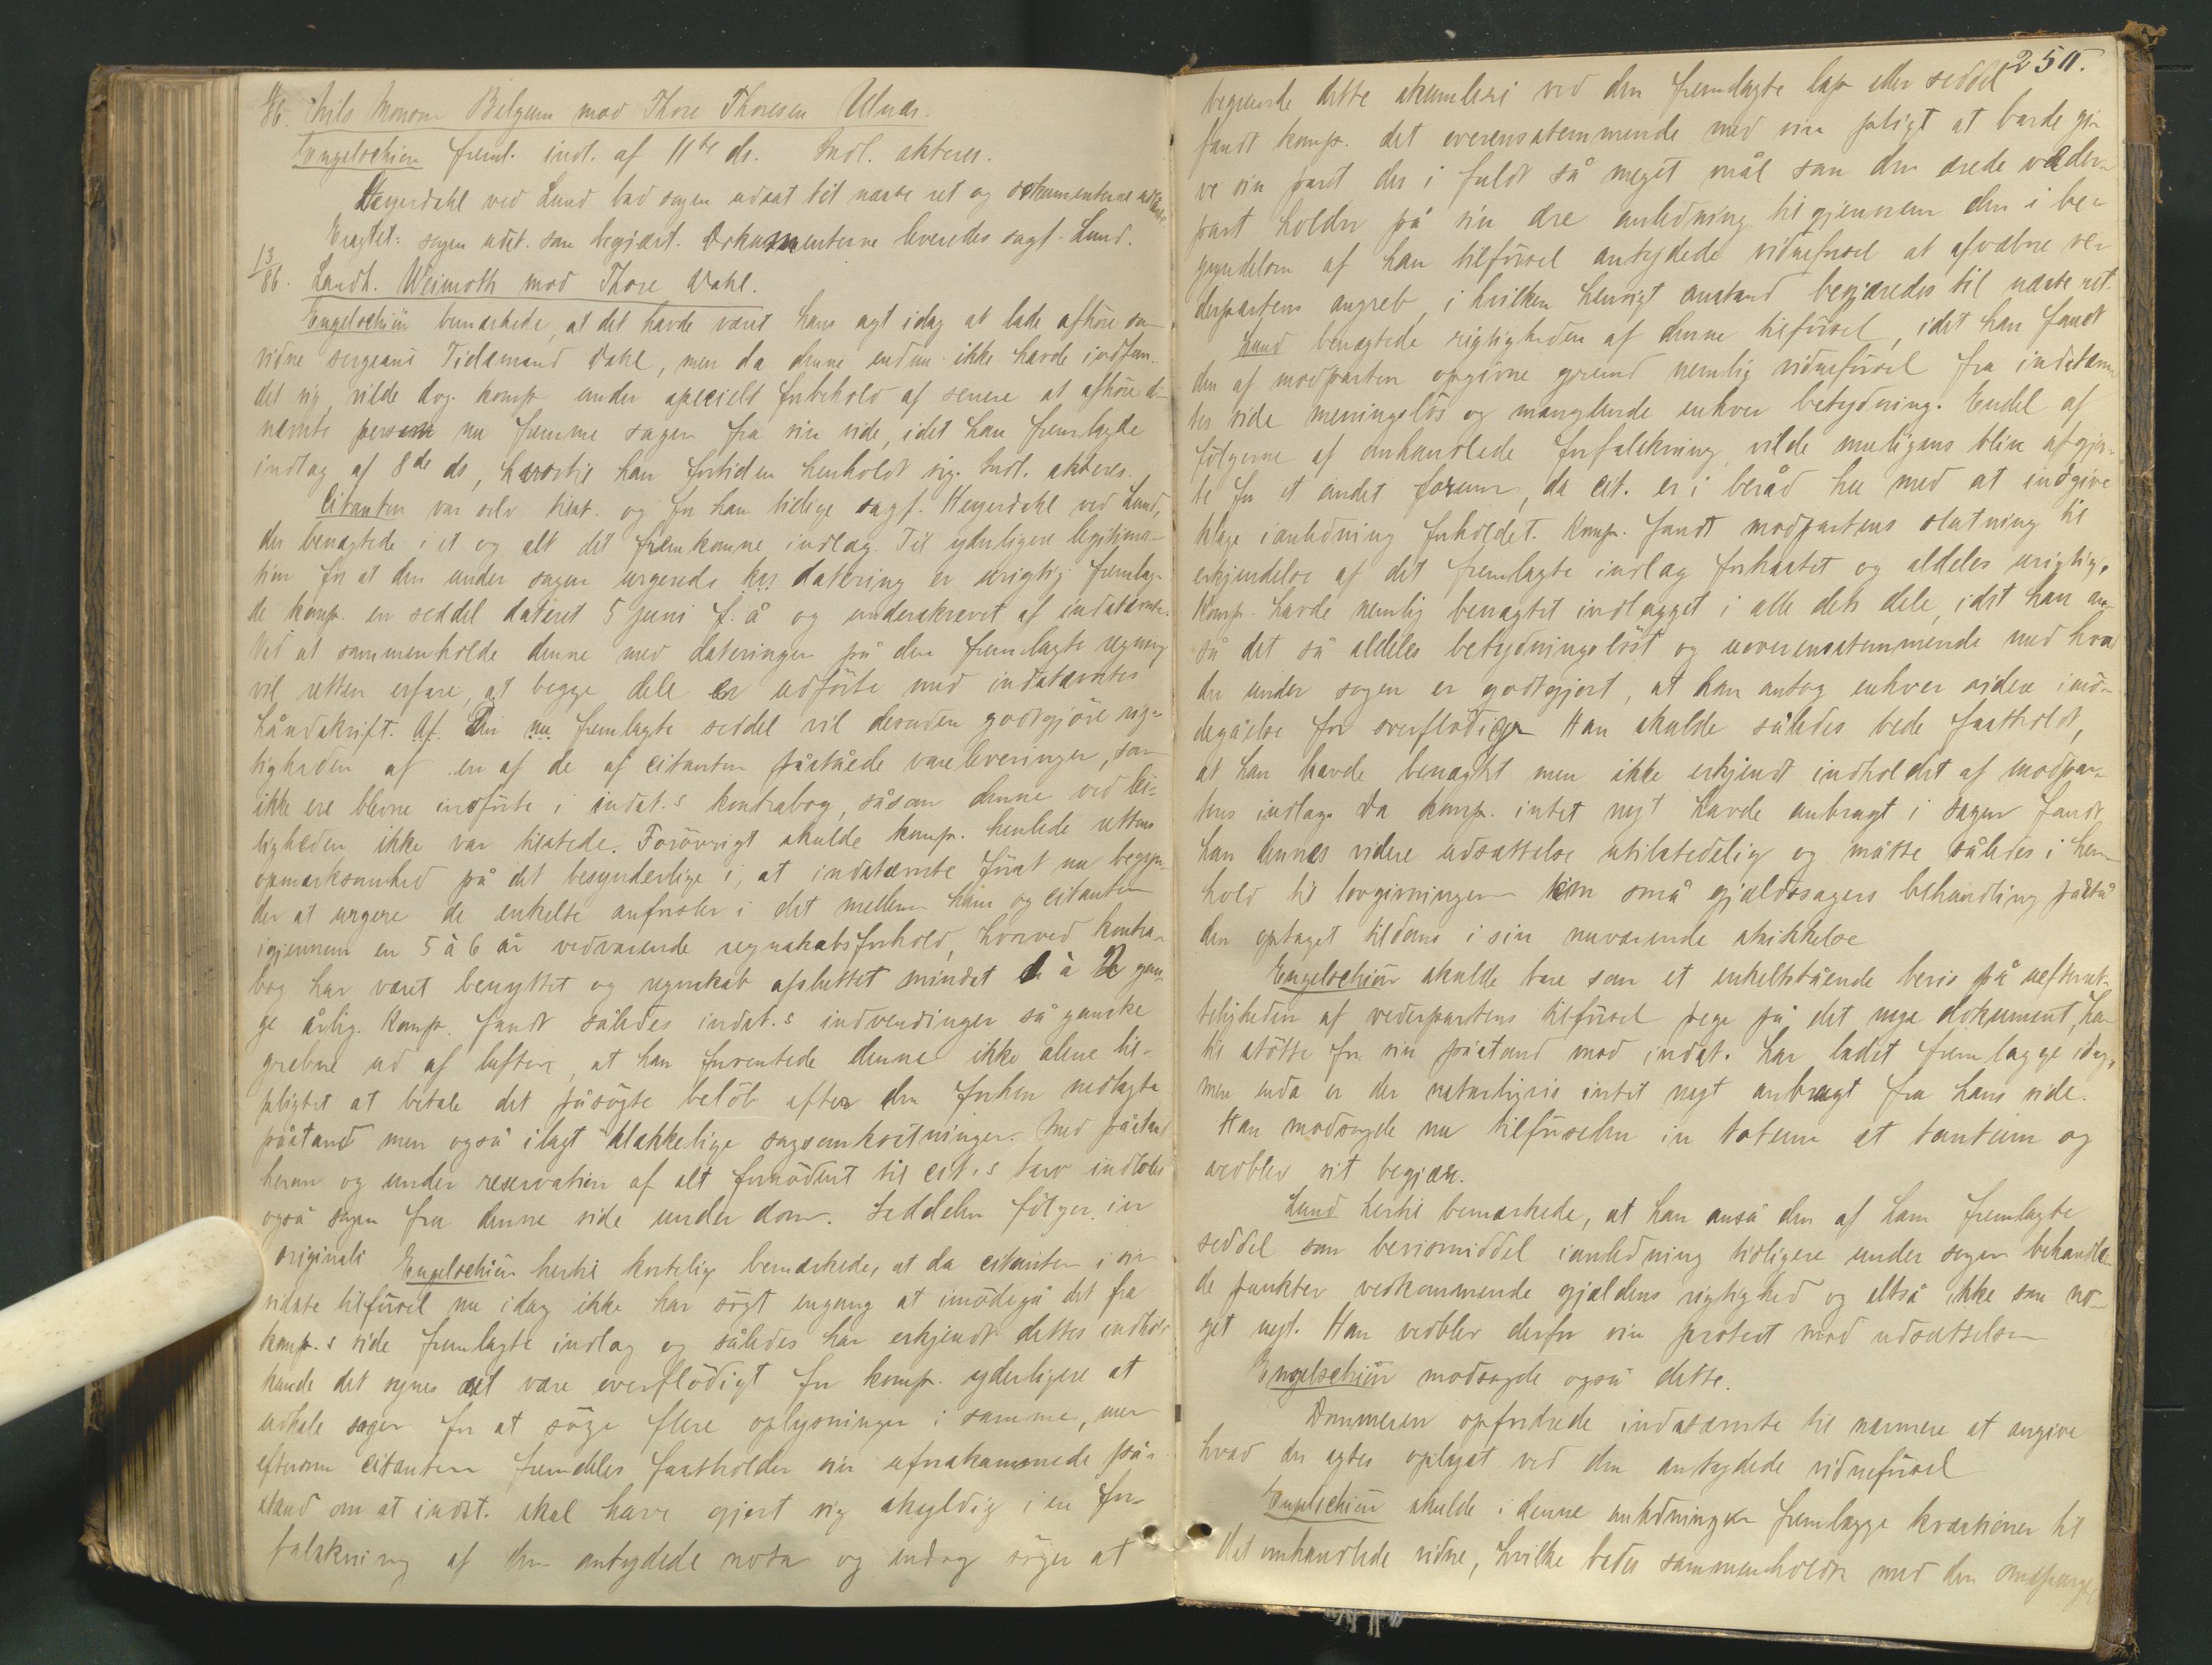 /86. Nils Monsen Belgum mod Thore Thoresen Ulnæs.
Engelschiøn freml. indl. af 11te ds. Indl. akteres.
Heyerdahl ved Lund bad sagen udsat til næste ret og dokumenterne udlånte.
Eragtet: sagen udst. som begjært. Dokumenterne leveredes sagf. Lund.
13/86. Landh. Weimoth mod Thore Dahl.
Engelschiøn bemærkede, at det havde været hans agt idag at lade afhöre som
vidne sergeant Tidemand Dahl, men da denne endnu ikke havde indfun-
det sig, vilde dog komp. under specielt forbehold af senere at afhöre den
nævnte person nu fremme sagen fra sin side, idet han fremlagde
indlæg af 8de ds, hvortil han fortiden henholdt sig. Indl. akteres.
Citanten var selv tilst. og for ham tillige sagf. Heyerdahl ved Lund,
der benægtede i et og alt det fremkomne indlæg. Til yderligere legitima-
tion for at den under sagen urgerede datering er urigtig fremlag-
de komp. en seddel dateret 5 juni f. å og underskrevet af indstævnte.
Ved at sammenholde denne med dateringen på den fremlagte regning
vil retten erfare, at begge dele er udförte med indstævntes
håndskrift. Af Den nu fremlagte seddel vil desuden godtgjöre rig-
tigheden af en af de af citanten påståede vareleveringer, som
ikke ere blevne indförte i indst.s kontrabog, såsom denne ved lei-
ligheden ikke var tilstede. Forövrigt skulde komp. henlede rettens
opmærksomhed på det besynderlige i, at indstævnte först nu begyn-
der at urgere de enkelte anförsler i det mellem ham og citanten
igjennem en 5 à 6 år vedvarende regnskabsforhold, hvorved kontra-
bog har været benyttet og regnskab afsluttet mindst 1 à 2 gan-
ge årlig. Komp. fandt således indst.s indvendinger så ganske
grebne ud af luften, at han forventede denne ikke alene til-
pligtet at betale det påsögte belöb efter den forhen nedlagte
påstand men også ilagt klækkelige sagsomkostninger. Med påstand
herom og under reservation af alt fornödent til cit.s tarv indlodes
også sagen fra denne side under dom. Seddelen fölger in
originali Engelschiøn hertil kortelig bemærkede, at da citanten i sin
sidste tilförsel nu idag ikke har sögt engang at imödegå det fra
komp.s side fremlagte indlæg og således har erkjendt dettes indhold
kunde det synes at være overflödigt for komp. yderligere at
udhale sagen for at söge flere oplysninger i samme, men
eftersom citanten fremdeles fastholder sin uforskammede på-
stand om at indst. skal have gjort sig skyldig i en for-
falskning af den antydede nota og endog söger at
250.
begrunde dette skumleri ved den fremlagte lap eller seddel
fandt komp. det overensstemmende med sin pligt at burde gi-
ve sin part der i fuldt så meget mål som den ærede veder-
part holder på sin ære anledning til gjennem den i be-
gyndelsen af han tilförsel antydede vidneförsel at afvæbne ve-
derpartens angreb, i hvilken henseigt anstand begjæredes til næste ret.
Lund benægtede rigtigheden af denne tilförsel, idet han fandt
den af modparten opgivne grund nemlig vidneförsel fra indstævn-
tes side meningslös og manglende enhver betydning. Endel af
fölgerne af omhandlede forfalskning, vilde muligens blive afgjor-
te for et andet forum, da cit. er i beråd hu med at indgive
klage ianledning forholdet. Komp. fandt modpartens slutning til
erkjendelse af det fremlagte indlæg forhastet og aldeles urigtig.
Komp. havde nemlig benægtet indlægget i alle dets dele, idet han an-
så det så aldeles betydningslöst og uoverensstemmende med hvad
der under sagen er godtgjort, at han antog enhver videre imö-
degåelse for overflödig. Han skulde således bede fastholdt,
at han havde benægtet men ikke erkjendt indholdet af modpar-
tens indlæg. Da komp. intet nyt havde anbragt i sagen fandt
han dennes videre udsættelse utilstedelig og måtte således i hen-
hold til lovgivningen om små gjældssagers behandling påstå
den optaget tildoms i sin nuværende skikkelse
Engelschiøn skulde bare som et enkeltstående bevis på uefterret-
teligheden af vederpartens tilförsel pege på det nye dokument, han
til stötte for sin påstand mod indst. har ladet fremlægge idag,
men enda er der naturligvis intet nyt anbragt fra hans side.
Han modsagde nu tilförselen in totum et tantum og
vedblev sit begjær.
Lund hertil bemærkede, at han anså den af ham fremlagte
seddel som bevismiddel ianledning tidligere under sagen behandle-
de punkter vedkommende gjældens rigtighed og altså ikke som no-
get nyt. Han vedblev derfor sin protest mod udsættelsen
Engelschiøn modsagde også dette.
Dommeren opfordrede indstævnte til nærmere at angive
hvad der agtes oplyst ved den antydede vidneförsel
Engelschiøn skulde i denne anledning fremlægge kvæstioner til
det omhandlede vidne, hvilke bedes sammenholdte med den